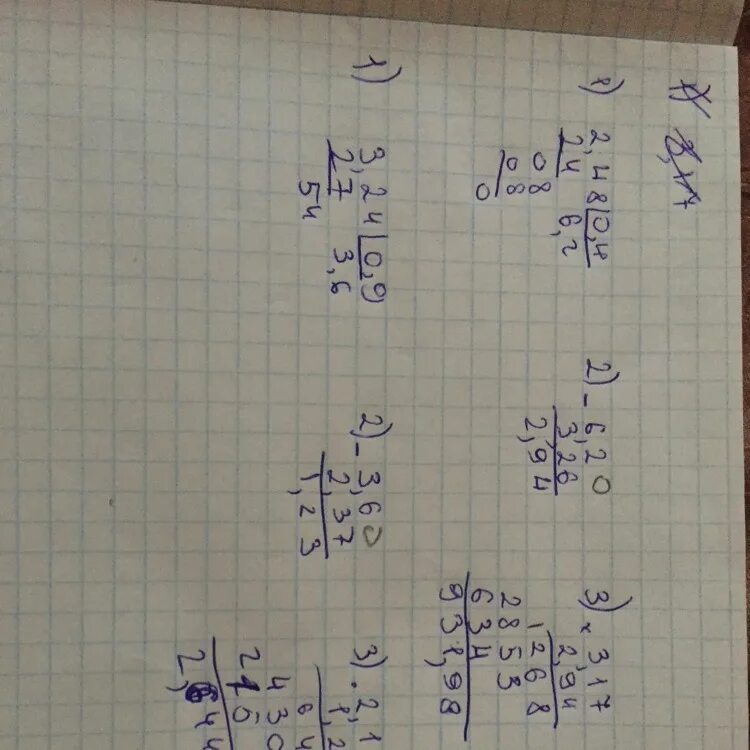 1) 3,17
1) 2,48|0,4
2,4 6,2
08
08
0
2) - 6,20
3,26
2,94
3) × 3,17
2,94
1268
2853
634
931,98
1) 3,24|0,9
2,7 3,6
54
2) - 3,60
2,37
1,23
3) · 2,1
1,2
64
430
215
2,644